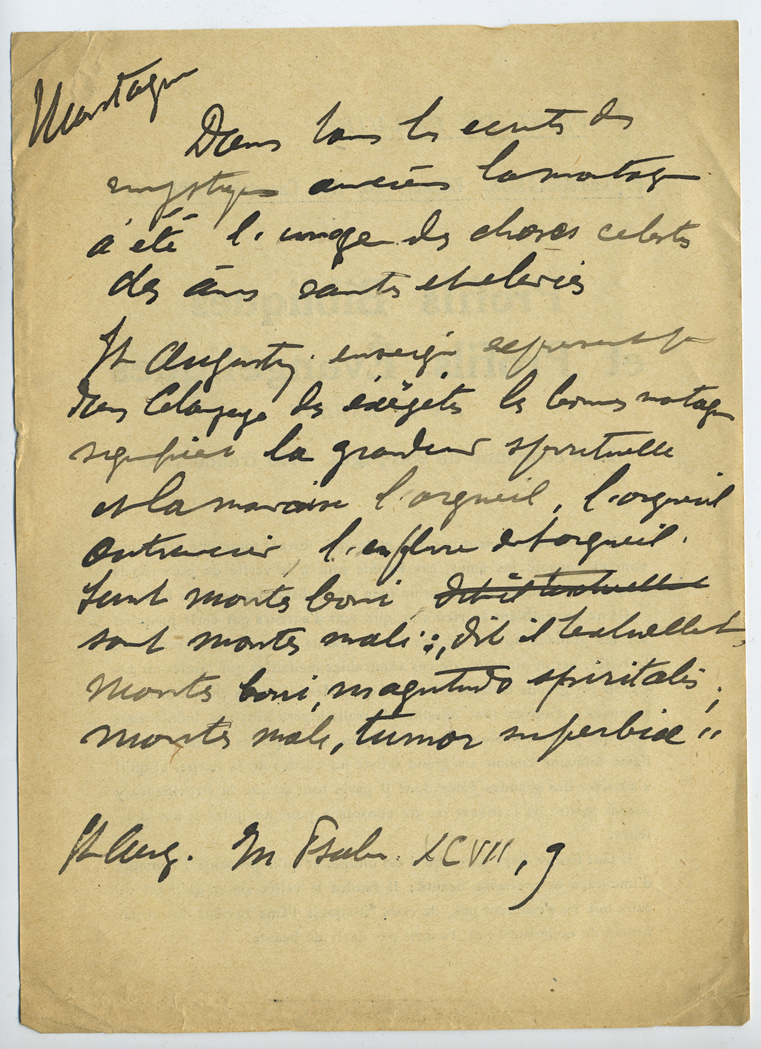 Montagne
Dans tous les ecrits des
mystiques anciens la montagne
a été l'image des choses celestes
des âmes saintes et elevées
St Augustin enseigne
Dans le langage des exégètes les bonnes montagnes
signifient la grandeur spirituelle
et la mauvaise l'orgueil, l'orgueil
l'enflure de l'orgueil.
Sunt montes boni dit il textuellement
sont montes mali :, dit il textuellement,
Montes boni, magnitudo spiritalis,
montes mali, tumor superbiae "
St Aug. In Psalm. XCVII, 9